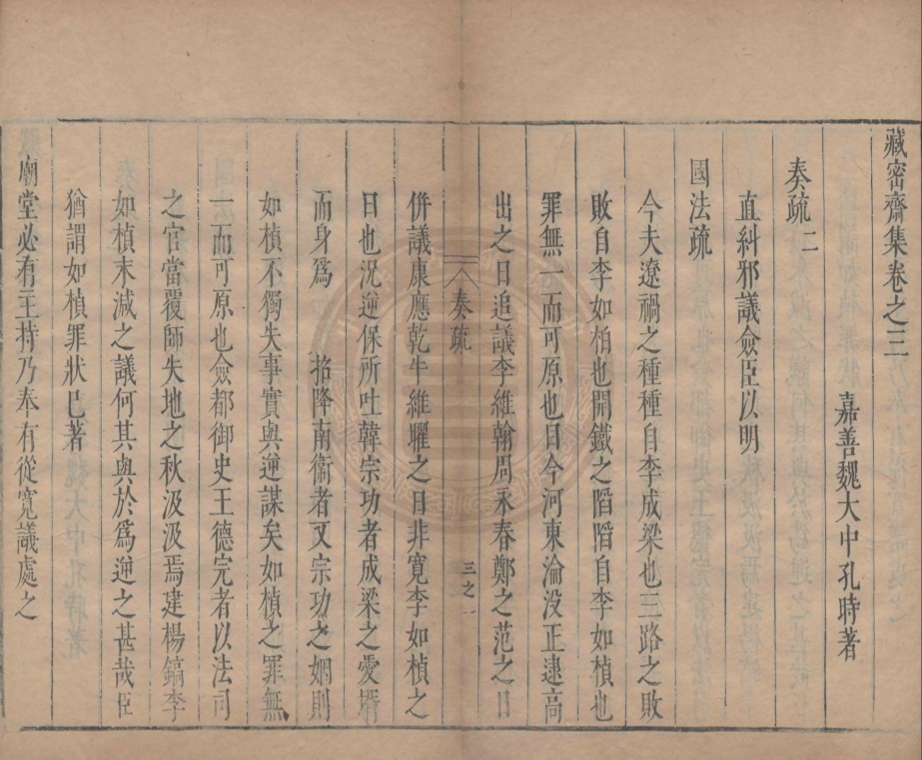 藏密齋集卷之三
嘉善魏大中孔時著
奏疏二
直糾邪議僉臣以明
國法疏
今夫遼禍之種種自李成梁也三路之敗
敗自李如柏也開鐵之䧟䧟自李如楨也
罪無一而可原也日今河東淪没正逮高
出之日追議李維翰周永春鄭之范之日
奏疏
三之一
併議康應乾牛維曜之日非寬李如楨之
日也況逆保所吐韓宗功者成梁之愛壻
而身爲 招降南衞者又宗功之姻則
如楨不獨失事實與逆謀矣如楨之罪無
一而可原也僉都御史王德完者以法司
之官當覆師失地之秋汲汲焉建楊鎬李
如楨末減之議何其與於爲逆之甚哉臣
猶謂如楨罪狀已著
廟堂必有王持乃奉有從寬議處之